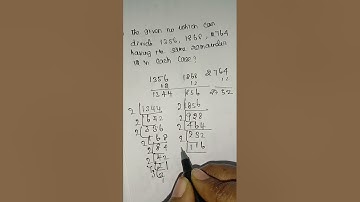 The given no which can
divide 1356, 1868, 2764
having the same remainder
12 in each case?
1356 1868 2764
12 12 12
1344 1856 2752
2 1344 2 1856
2 672 2 928
2 336 2 464
2 168 2 232
2 84 116
2 42